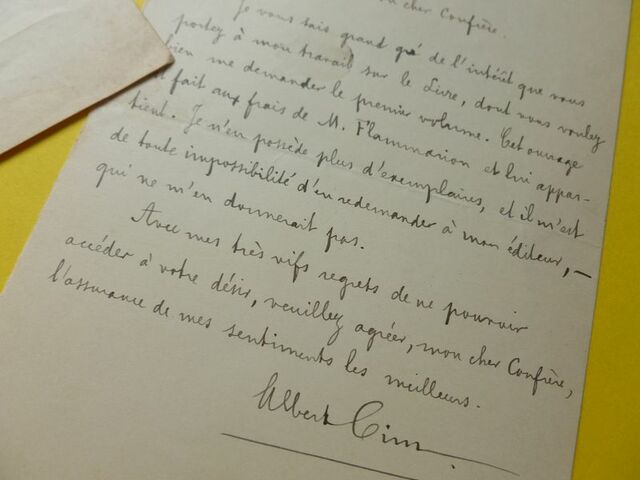 cher Confrère.
Je vous sais grand gré de l'intérêt que vous
portez à mon travail sur le Livre, dont vous voulez
bien me demander le premier volume. Cet ouvrage
fait aux frais de M. Flammarion et lui appar-
tient. Je n'en possède plus d'exemplaires, et il m'est
de toute impossibilité d'en redemander à mon éditeur, —
qui ne m'en donnerait pas.
Avec mes très vifs regrets de ne pouvoir
accéder à votre désir, veuillez agréer, mon cher Confrère,
l'assurance de mes sentiments les meilleurs.
Albert Cim.